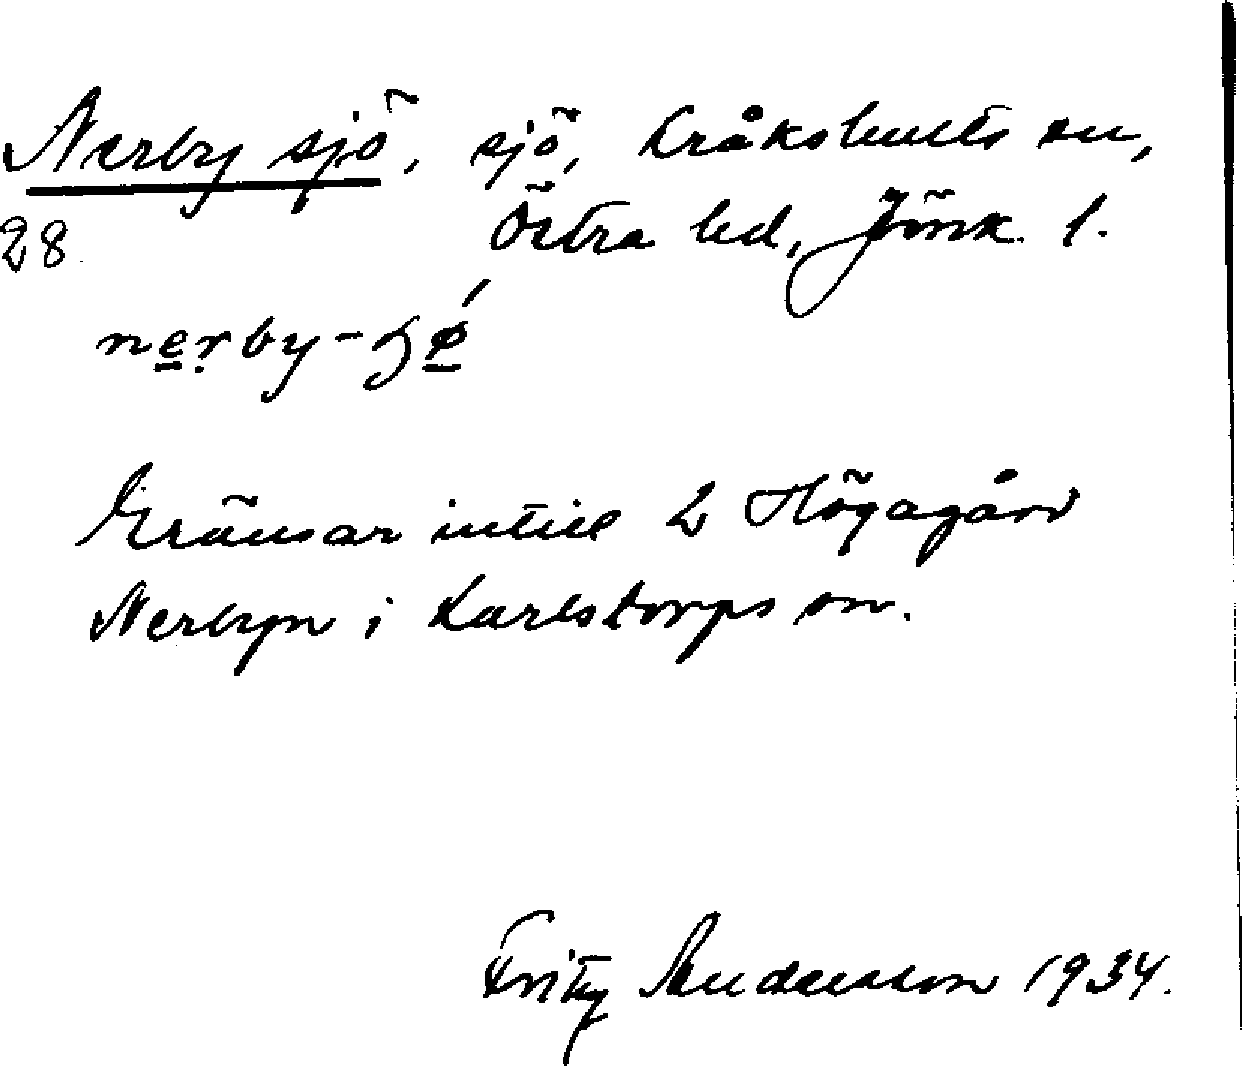 Nerby sjö, sjö, Kråkshults sn,
28 Östra hd, Jönk. l.
nerby-ʒǿ
Gränsar intill 2 Högagärd
Nerbyn i Karlstorps sn.
Fritz Andersson 1934.